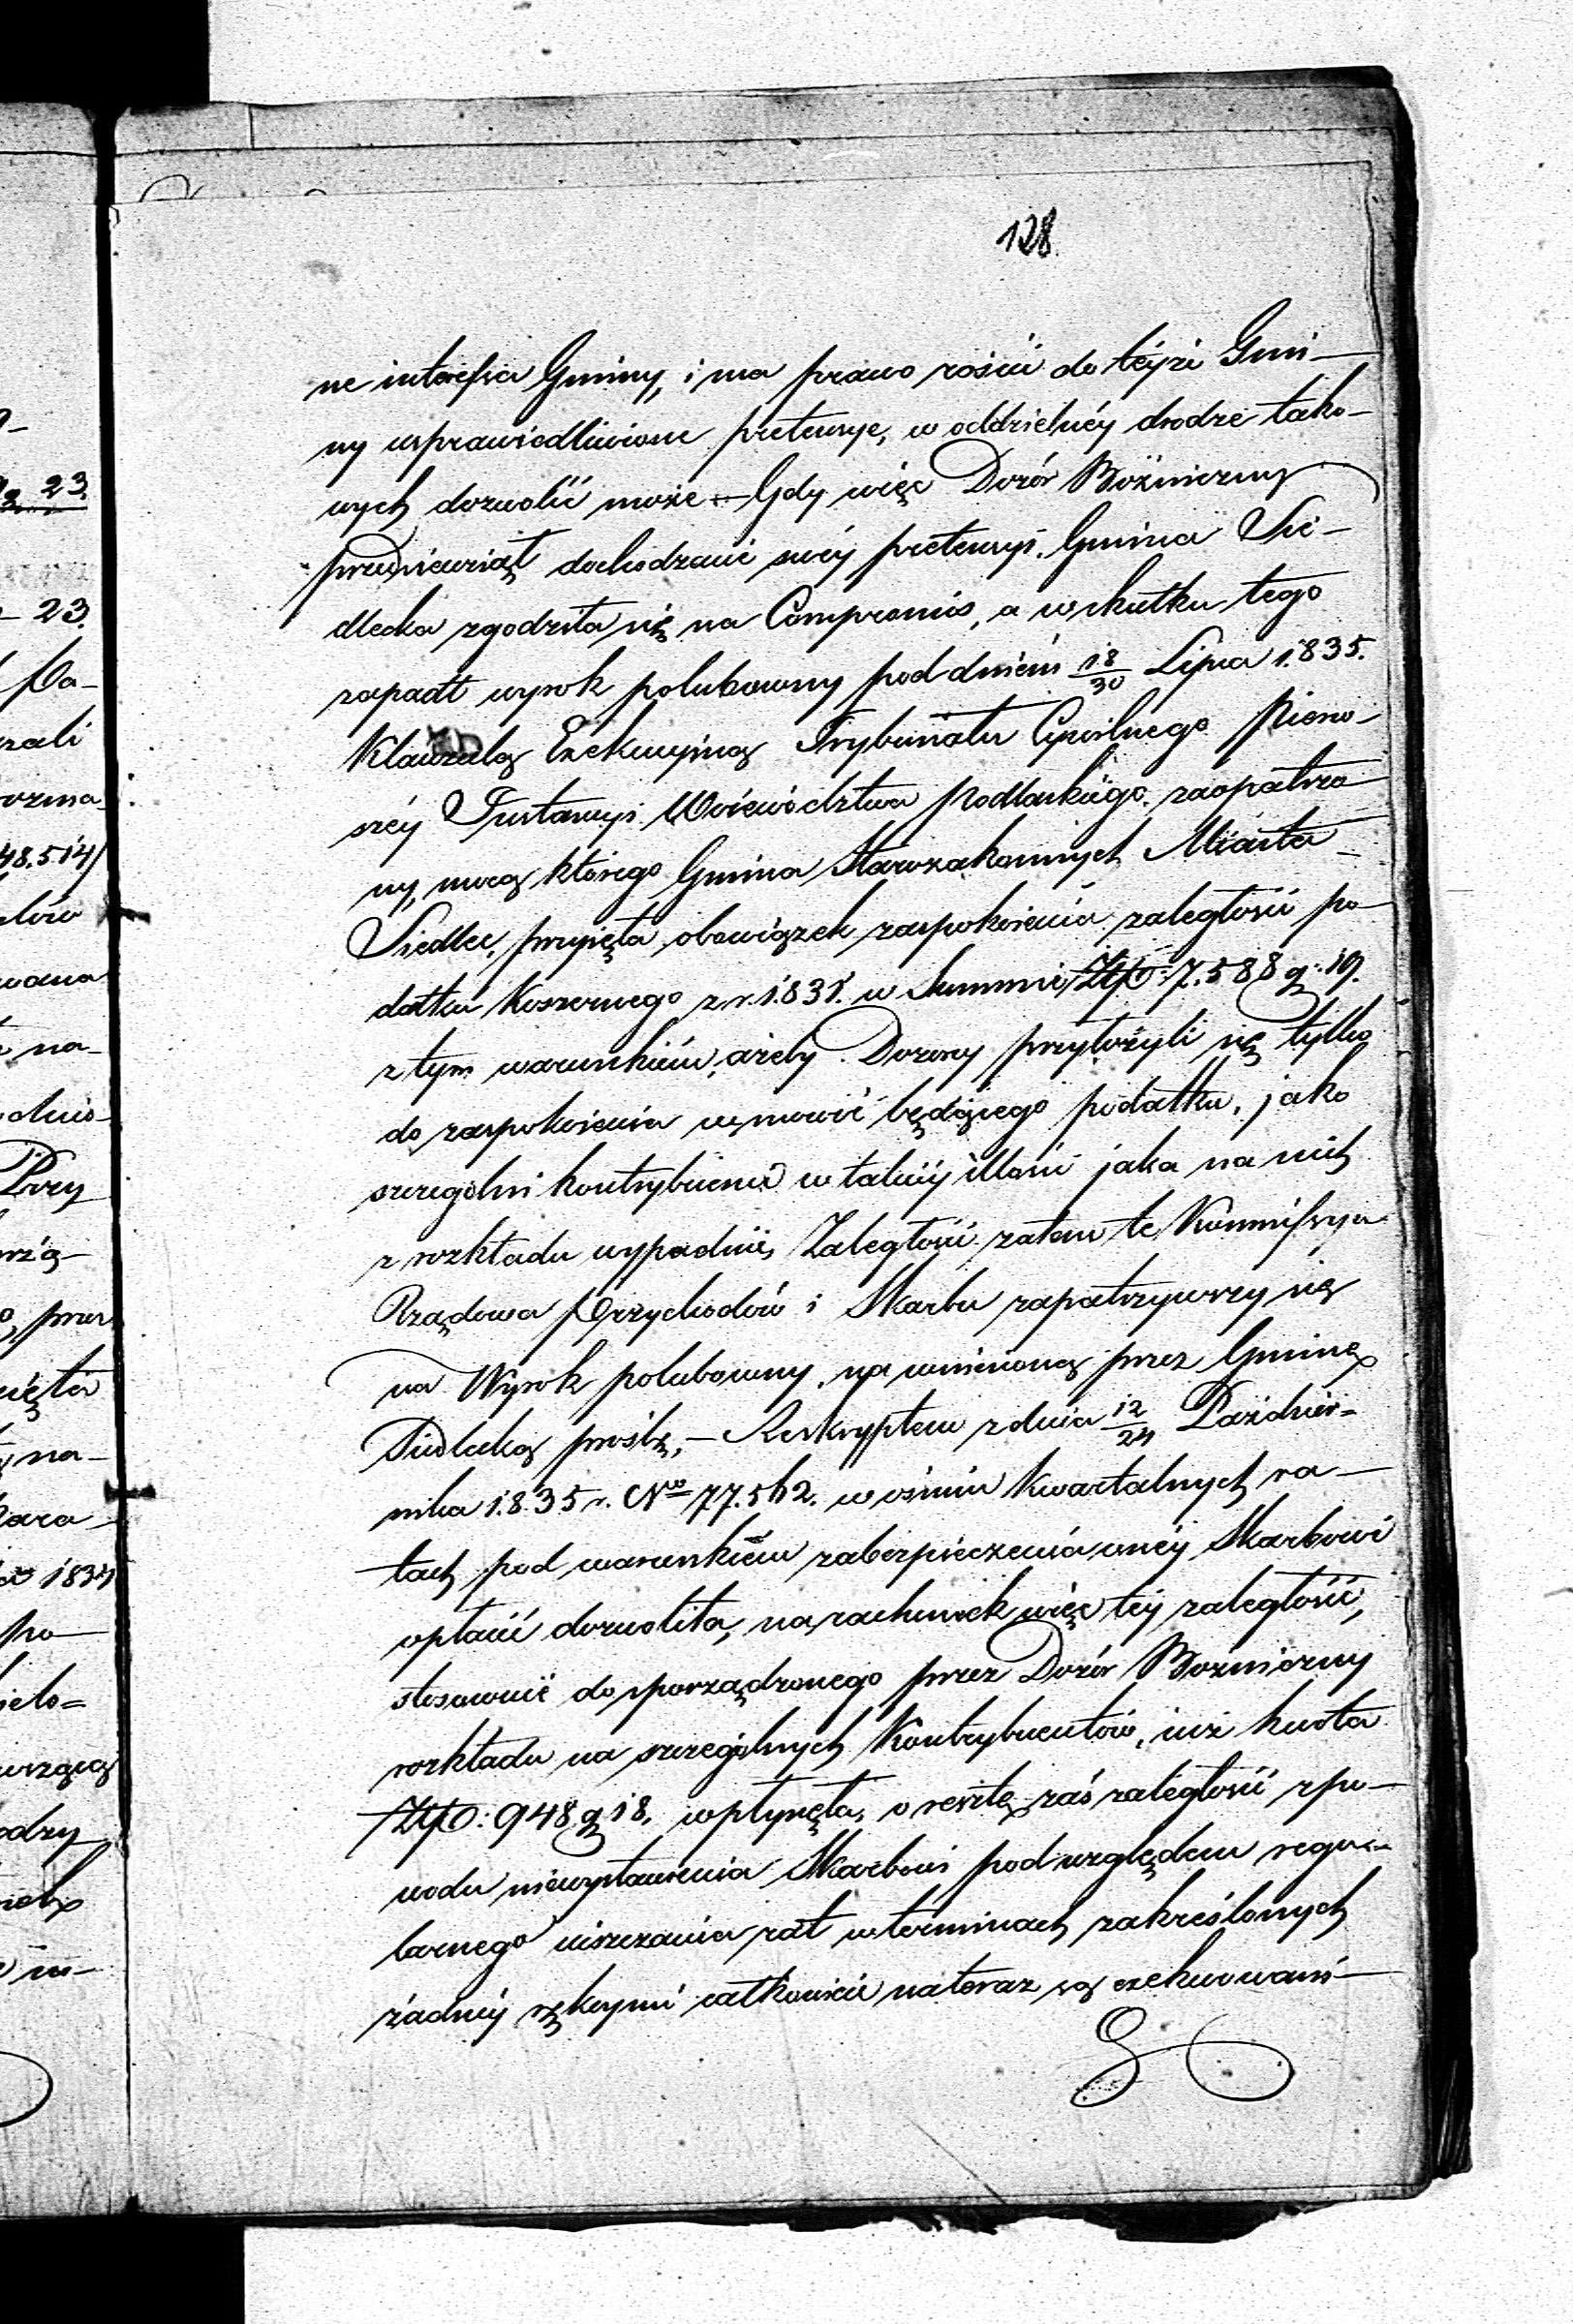 128.
ne interessa Gminy, i ma prawo rościć do téyże Gmi-
ny usprawiedliwione pretensye, w oddzielnéy drodze tako-
wych dozwolić może – Gdy więc Dozór Bóżniczny
przedsięwziął dochodzenie swéy pretensyi, Gmina Sie-
dlecka zgodziła się na Compromis, a w skutku tego
zapadł wyrok polubowny pod dniem 18/30 Lipca 1835.
Klauzulą Exekucyiną Trybunału Cywilnego Pierw-
széy Instancyi Woiewództwa Podlaskiego zaopatrzo-
ny, mocą którego Gmina Starozakonnych Miasta
Siedlec, przyięła obowiązek zaspokoienia zaległości po-
datku Koszernego z r. 1831. w Summie Złp: 7.588 g: 19.
z tym warunkiem, ażeby Dozorcy przyłożyli się tylko
do zaspokoienia w mowie będącego podatku, jako
szczególni kontrybuenci w takiéy ilłości jaka na nich
z rozkładu wypadnie, Zaległość zatem tę Kommissya
Rządowa Przychodów i Skarbu zapatrzywszy się
na Wyrok polubowny, na wniesioną przez Gminę
Siedlecką prośbę, – Reskryptem z dnia 12/24 Paździer-
nika 1835 r. No 77.562. w ośmiu Kwartalnych ra-
tach pod warunkiem zabezpieczenia onéy Skarbowi
opłacić dozwoliła, na rachunek więc téy zaległości,
stosownie do sporządzonego przez Dozór Bożniczny
rozkładu na szczególnych Kontrybuentów, iuż kwota
Złp: 948 g 18. wpłynęła, o resztę zaś zaległości z po-
wodu niewystawienia Skarbowi pod względem regu-
larnego uiszczania rat w terminach zakreślonych
żadnéy rękoymi całkowicie na teraz są exekwowani